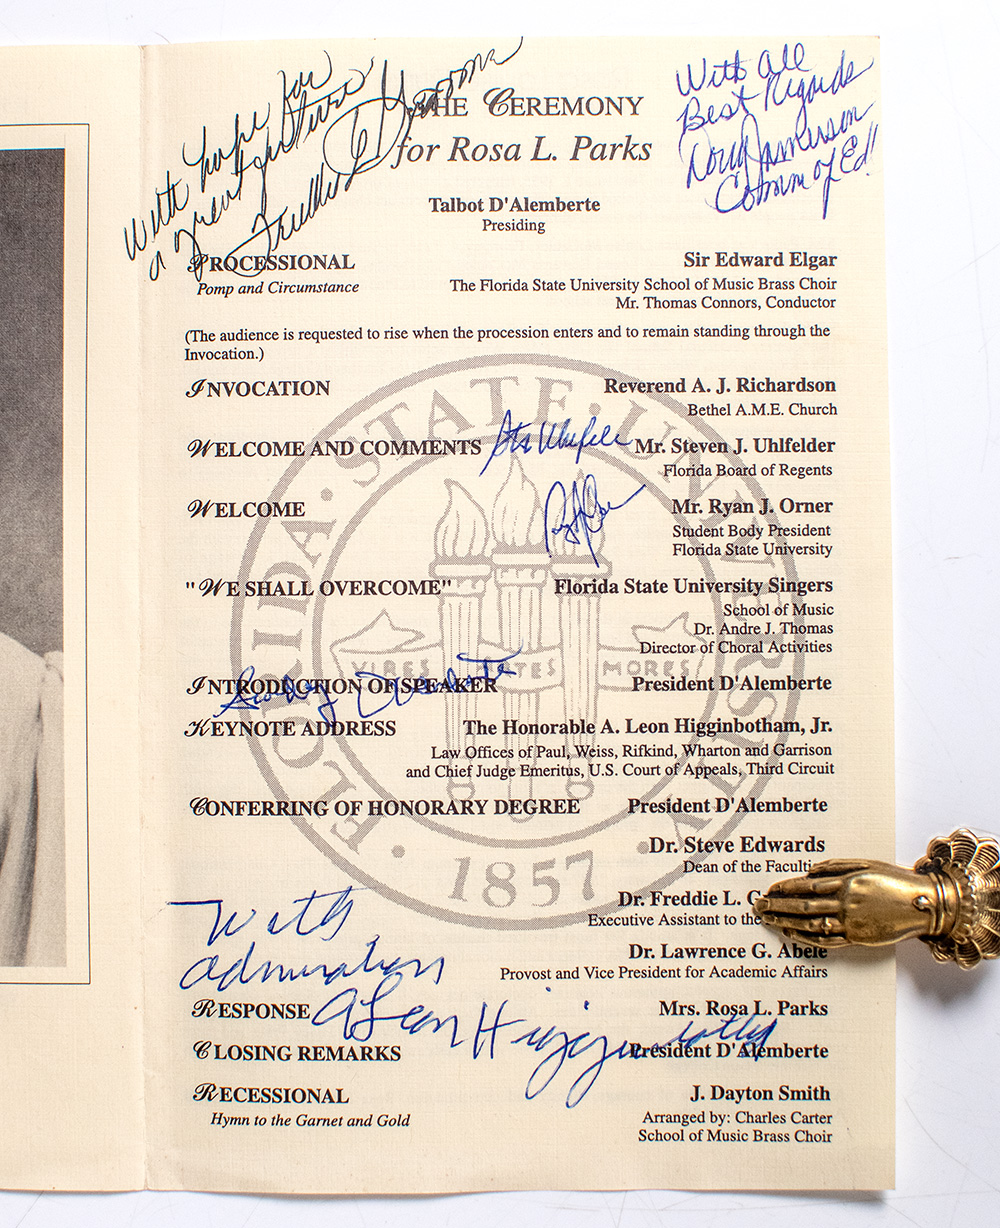 With hope for
a great future
Freddie L. Groomes
With all
Best Regards
Doug Jamerson
Comm of Ed!!
THE CEREMONY
for Rosa L. Parks
Talbot D'Alemberte
Presiding
PROCESSIONAL Sir Edward Elgar
Pomp and Circumstance The Florida State University School of Music Brass Choir
Mr. Thomas Connors, Conductor
(The audience is requested to rise when the procession enters and to remain standing through the
Invocation.)
INVOCATION Reverend A. J. Richardson
Bethel A.M.E. Church
WELCOME AND COMMENTS Mr. Steven J. Uhlfelder
Florida Board of Regents
WELCOME Mr. Ryan J. Orner
Student Body President
Florida State University
"WE SHALL OVERCOME" Florida State University Singers
School of Music
Dr. Andre J. Thomas
Director of Choral Activities
INTRODUCTION OF SPEAKER President D'Alemberte
KEYNOTE ADDRESS The Honorable A. Leon Higginbotham, Jr.
Law Offices of Paul, Weiss, Rifkind, Wharton and Garrison
and Chief Judge Emeritus, U.S. Court of Appeals, Third Circuit
CONFERRING OF HONORARY DEGREE President D'Alemberte
Dr. Steve Edwards
Dean of the Faculti
Dr. Freddie L. G
Executive Assistant to the
Dr. Lawrence G. Abele
Provost and Vice President for Academic Affairs
With
admiration
A Leon Higginbotham
RESPONSE Mrs. Rosa L. Parks
CLOSING REMARKS President D'Alemberte
RECESSIONAL J. Dayton Smith
Hymn to the Garnet and Gold Arranged by: Charles Carter
School of Music Brass Choir
FLORIDA · STATE · UNIVERSITY
VIRES ARTES MORES
· 1857 ·